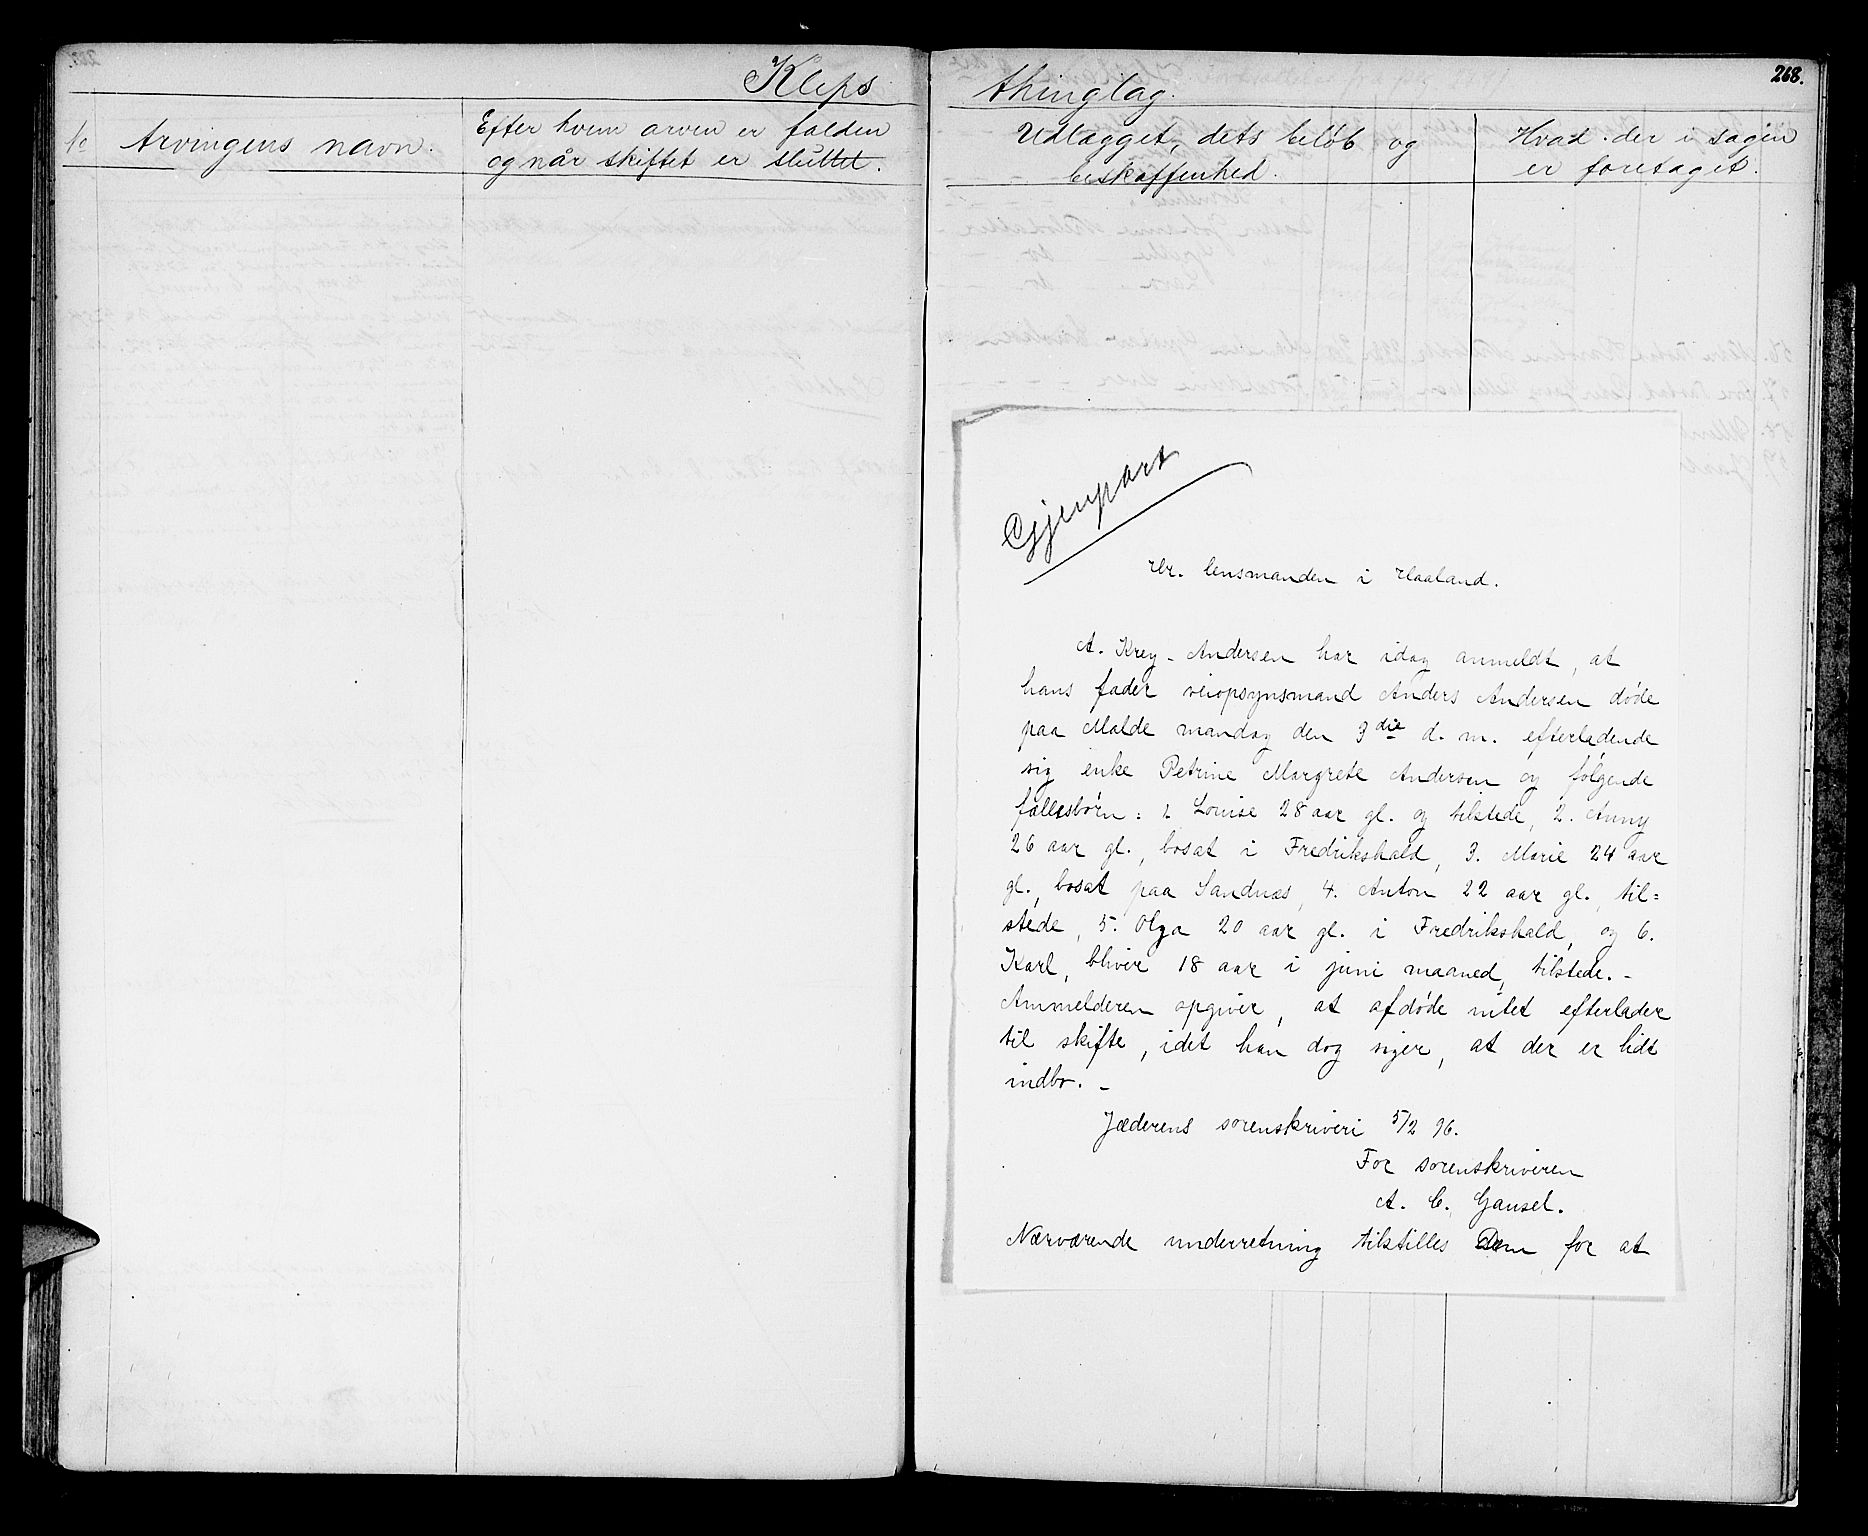 268.
Kleps thinglag.
№ Arvingens navn.
Efter hvem arven er falden
og når skiftet er sluttet.
Udlægget, dets beløb og
beskaffenhed.
Hvad der i sagen
er foretaget.
Gjenpart
Hr. lensmanden i Haaland.
A. Krey-Andersen har idag anmeldt, at
hans fader veiopsynsmand Anders Andersen døde
paa Malde mandag den 3die d. m. efterladende
sig enke Petrine Margrete Andersen og følgende
fællesbørn: 1. Louise 28 aar gl. og tilstede, 2. Anny
26 aar gl., bosat i Fredrikshald, 3. Marie 24 aar
gl., bosat paa Sandnæs, 4. Anton 22 aar gl., til=
stede, 5. Olga 20 aar gl. i Fredrikshald, og 6.
Karl, bliver 18 aar i juni maaned, tilstede. -
Anmelderen opgiver, at afdøde intet efterlader
til skifte, idet han dog siger, at der er lidt
indbo. -
Jæderens sorenskriveri 5/2 96.
For sorenskriveren
A. C. Gausel.
Nærværende underretning tilstilles Dem for at